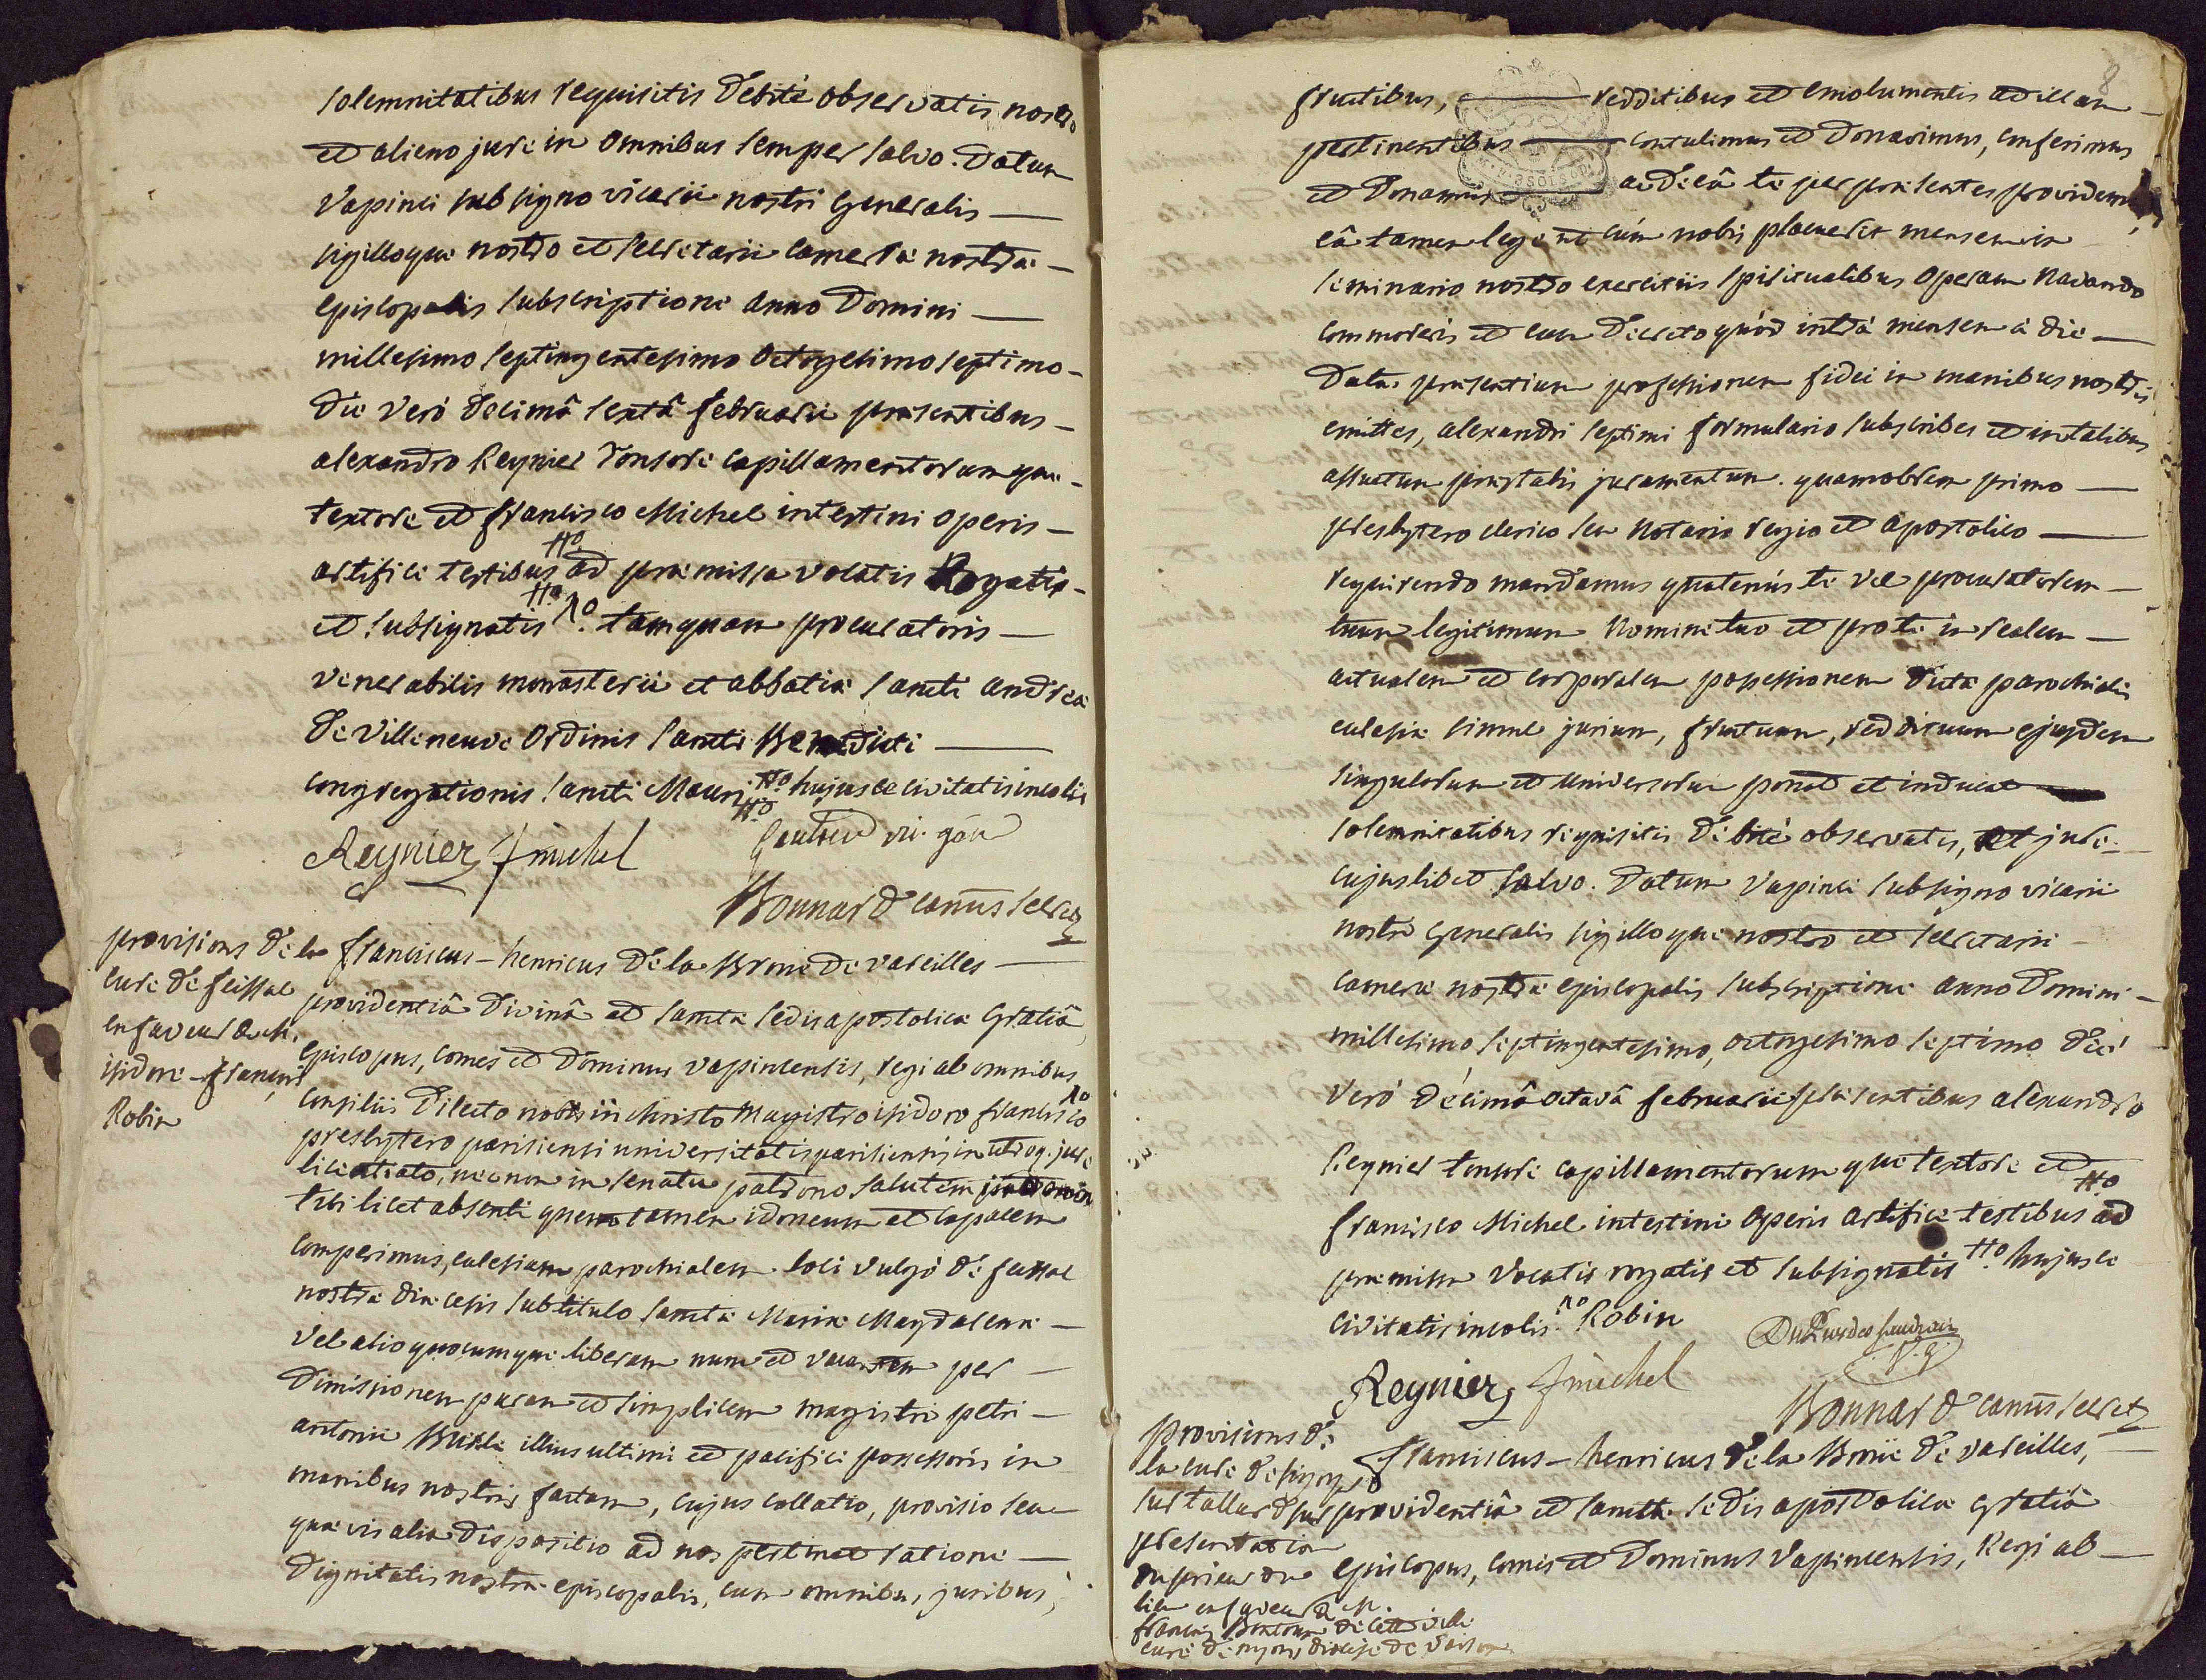 solemnitatibus requisitis debitè observatis nostro
et alieno jure in omnibus semper salvo. Datum
Vapinci sub signo vicarii nostri generalis
sigilloque nostro et secretarii cameræ nostræ
episcopalis subscriptione anno Domini
millesimo septingentesimo octogesimo septimo
die verò decimâ sextâ februarii præsentibus
alexandro Reynier tonsore capillamentorumque
textore et francisco Michel intestini operis
artifice testibus ad præmissa vocatis Rogatis
et subsignatis tamquam procuratoris
venerabilis monasterii et abbatiæ sancti andreæ
de villeneuve ordinis sancti Benedicti
congregationis sancti Mauri hujusce civitatis incolis
Reynier fmichel vic. gén
Bonnard canus secret
provisions de la
cure de feissal
en faveur de M.
isidore-françois
Robin
franciscus-henricus de la Broüe de vareilles
providentiâ divinâ et sanctæ sedis apostolicæ gratiâ
episcopus, comes et dominus vapincensis, regi ab omnibus
consiliis dilecto nobis in christo magistro isidoro francisco
presbytero parisiensi universitatis parisiensis in utroq. jure
licentiato, necnon in senatu patrono salutem in domino
tibi licet absenti quem tamen idoneum et capacem
comperimus, ecclesiam parochialem loci vulgò de feissal
nostræ diæcesis sub titulo sanctæ Mariæ Magdalenæ
vel alio quocumque liberam nunc et vacantem per
dimissionem puram et simplicem magistri petri
antonii illius ultimi et pacifici possessoris in
manibus nostris factam, cujus collatio, provisio seu
quævis alia dispositio ad nos pertinet ratione
dignitatis nostræ episcopalis, cum omnibus juribus,
8
fructibus, redditibus et emolumentis ad illam
pertinentibus contulimus et donavimus, conferimus
et donamus ac de eâ te per præsentes providemus,
eâ tamen lege ut cùm nobis placuerit mensem in
seminario nostro exercitiis spiritualibus operam navando
commoreris et cum decreto quòd intrà mensem à die
datæ præsentium professionem fidei in manibus nostris
emittes, alexandri septimi formulario subscribes et in talibus
assuetum præstabis juramentum. quamobrem primo
presbytero clerico seu notario regio et apostolico
requirendo mandamus quatenùs te vel procuratorem
tuum legitimum nomine tuo et pro te in realem
actualem et corporalem possessionem dictæ parochialis
ecclesiæ simul jurium, fructuum, reddituum ejusdem
singulorum et universorum ponat et inducat
solemnitatibus requisitis debitè observatis, et jure
cujuslibet salvo. Datum Vapinci sub signo vicarii
nostri generalis sigilloque nostro et secretarii
cameræ nostræ episcopalis subscriptione anno Domini
millesimo septingentesimo, octogesimo septimo die
verò décimâ octavâ februarii præsentibus alexandro
Reynier tonsore capillamentorumque textore et
francisco Michel intestini operis artifice testibus ad
præmissa vocatis rogatis et subsignatis hujusce
civitatis incolis. Robin
Reynier fmichel v.g.
Bonnard canus secret
provisions de
la cure de sigoyer
sur tallard sur
présentation
en faveur de M.
françois de cette ville
curé de nyons diocèse de vaison
franciscus-henricus de la Broüe de vareilles,
providentiâ et sanctæ sedis apostolicæ gratiâ
episcopus, comes et dominus vapincensis, Regi ab